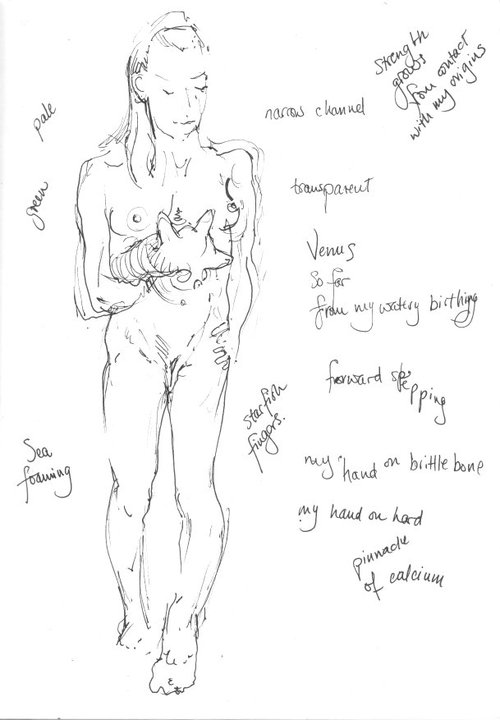 Strength
grows
from contact
with my origins
pale
narrow channel
green
transparent
Venus
so far
from my watery birthing
forward stepping
starfish
fingers.
Sea
foaming
my hand on brittle bone
my hand on hard
pinnacle
of calcium